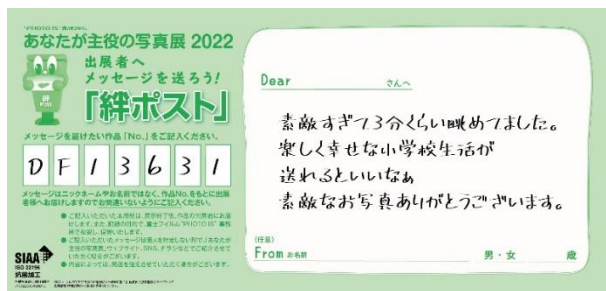 "PHOTO IS" 想いをつなぐ。
あなたが主役の写真展 2022
出展者へ
メッセージを送ろう!
「絆ポスト」
絆
POST
メッセージを届けたい作品「No.」をご記入ください。
D F 1 3 6 3 1
メッセージはニックネームやお名前ではなく、作品No.をもとに出展
者様へお届けしますのでお間違いないようにご記入ください。
SIAA
ISO 22196
抗菌加工
Dear さんへ
素敵すぎて3分くらい眺めてました。
楽しく幸せな小学校生活が
送れるといいなぁ
素敵なお写真ありがとうございます。
(任意)
From お名前 男・女 歳